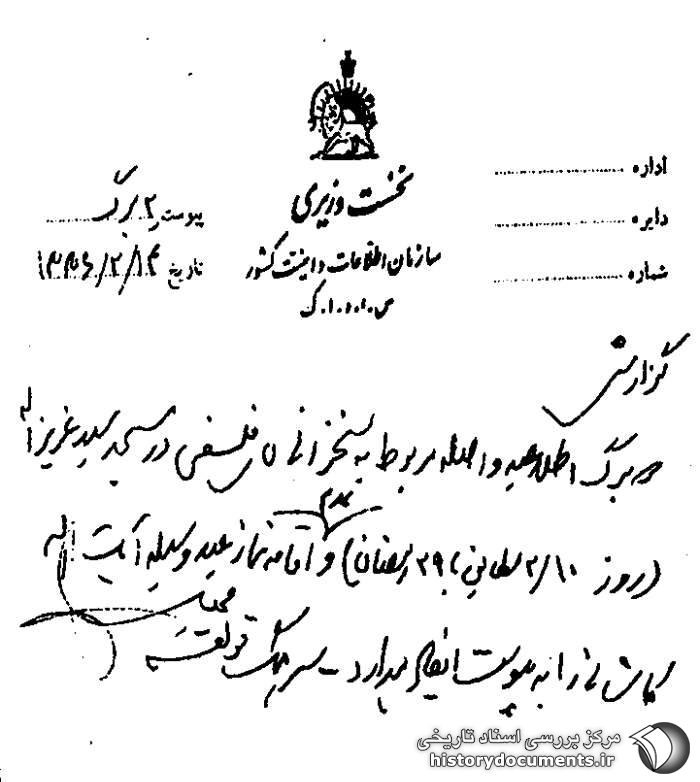 اداره
دایره
شماره
نخست وزیری
سازمان اطلاعات و امنیت کشور
س.ا.و.ا.ک
پیوست ۲ برگ
تاریخ ۱۳۳۶/۲/۱۴
گزارش
دو برگ اطلاعیه واصله مربوط به سخنرانی فلسفی در مسجد سید عزیزاله
(روز ۲/۱۰ مطابق با ۲۹ رمضان) و اقامه نماز عید وسیله آیت اله
را به پیوست ایفاد میدارد - سرهنگ
مرکز بررسی اسناد تاریخی
historydocuments.ir